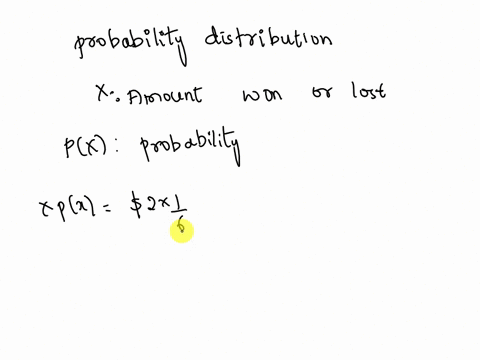 probability distribution
X: Amount won or lost
P(X): probability
x p(x) = $2 × 1/6